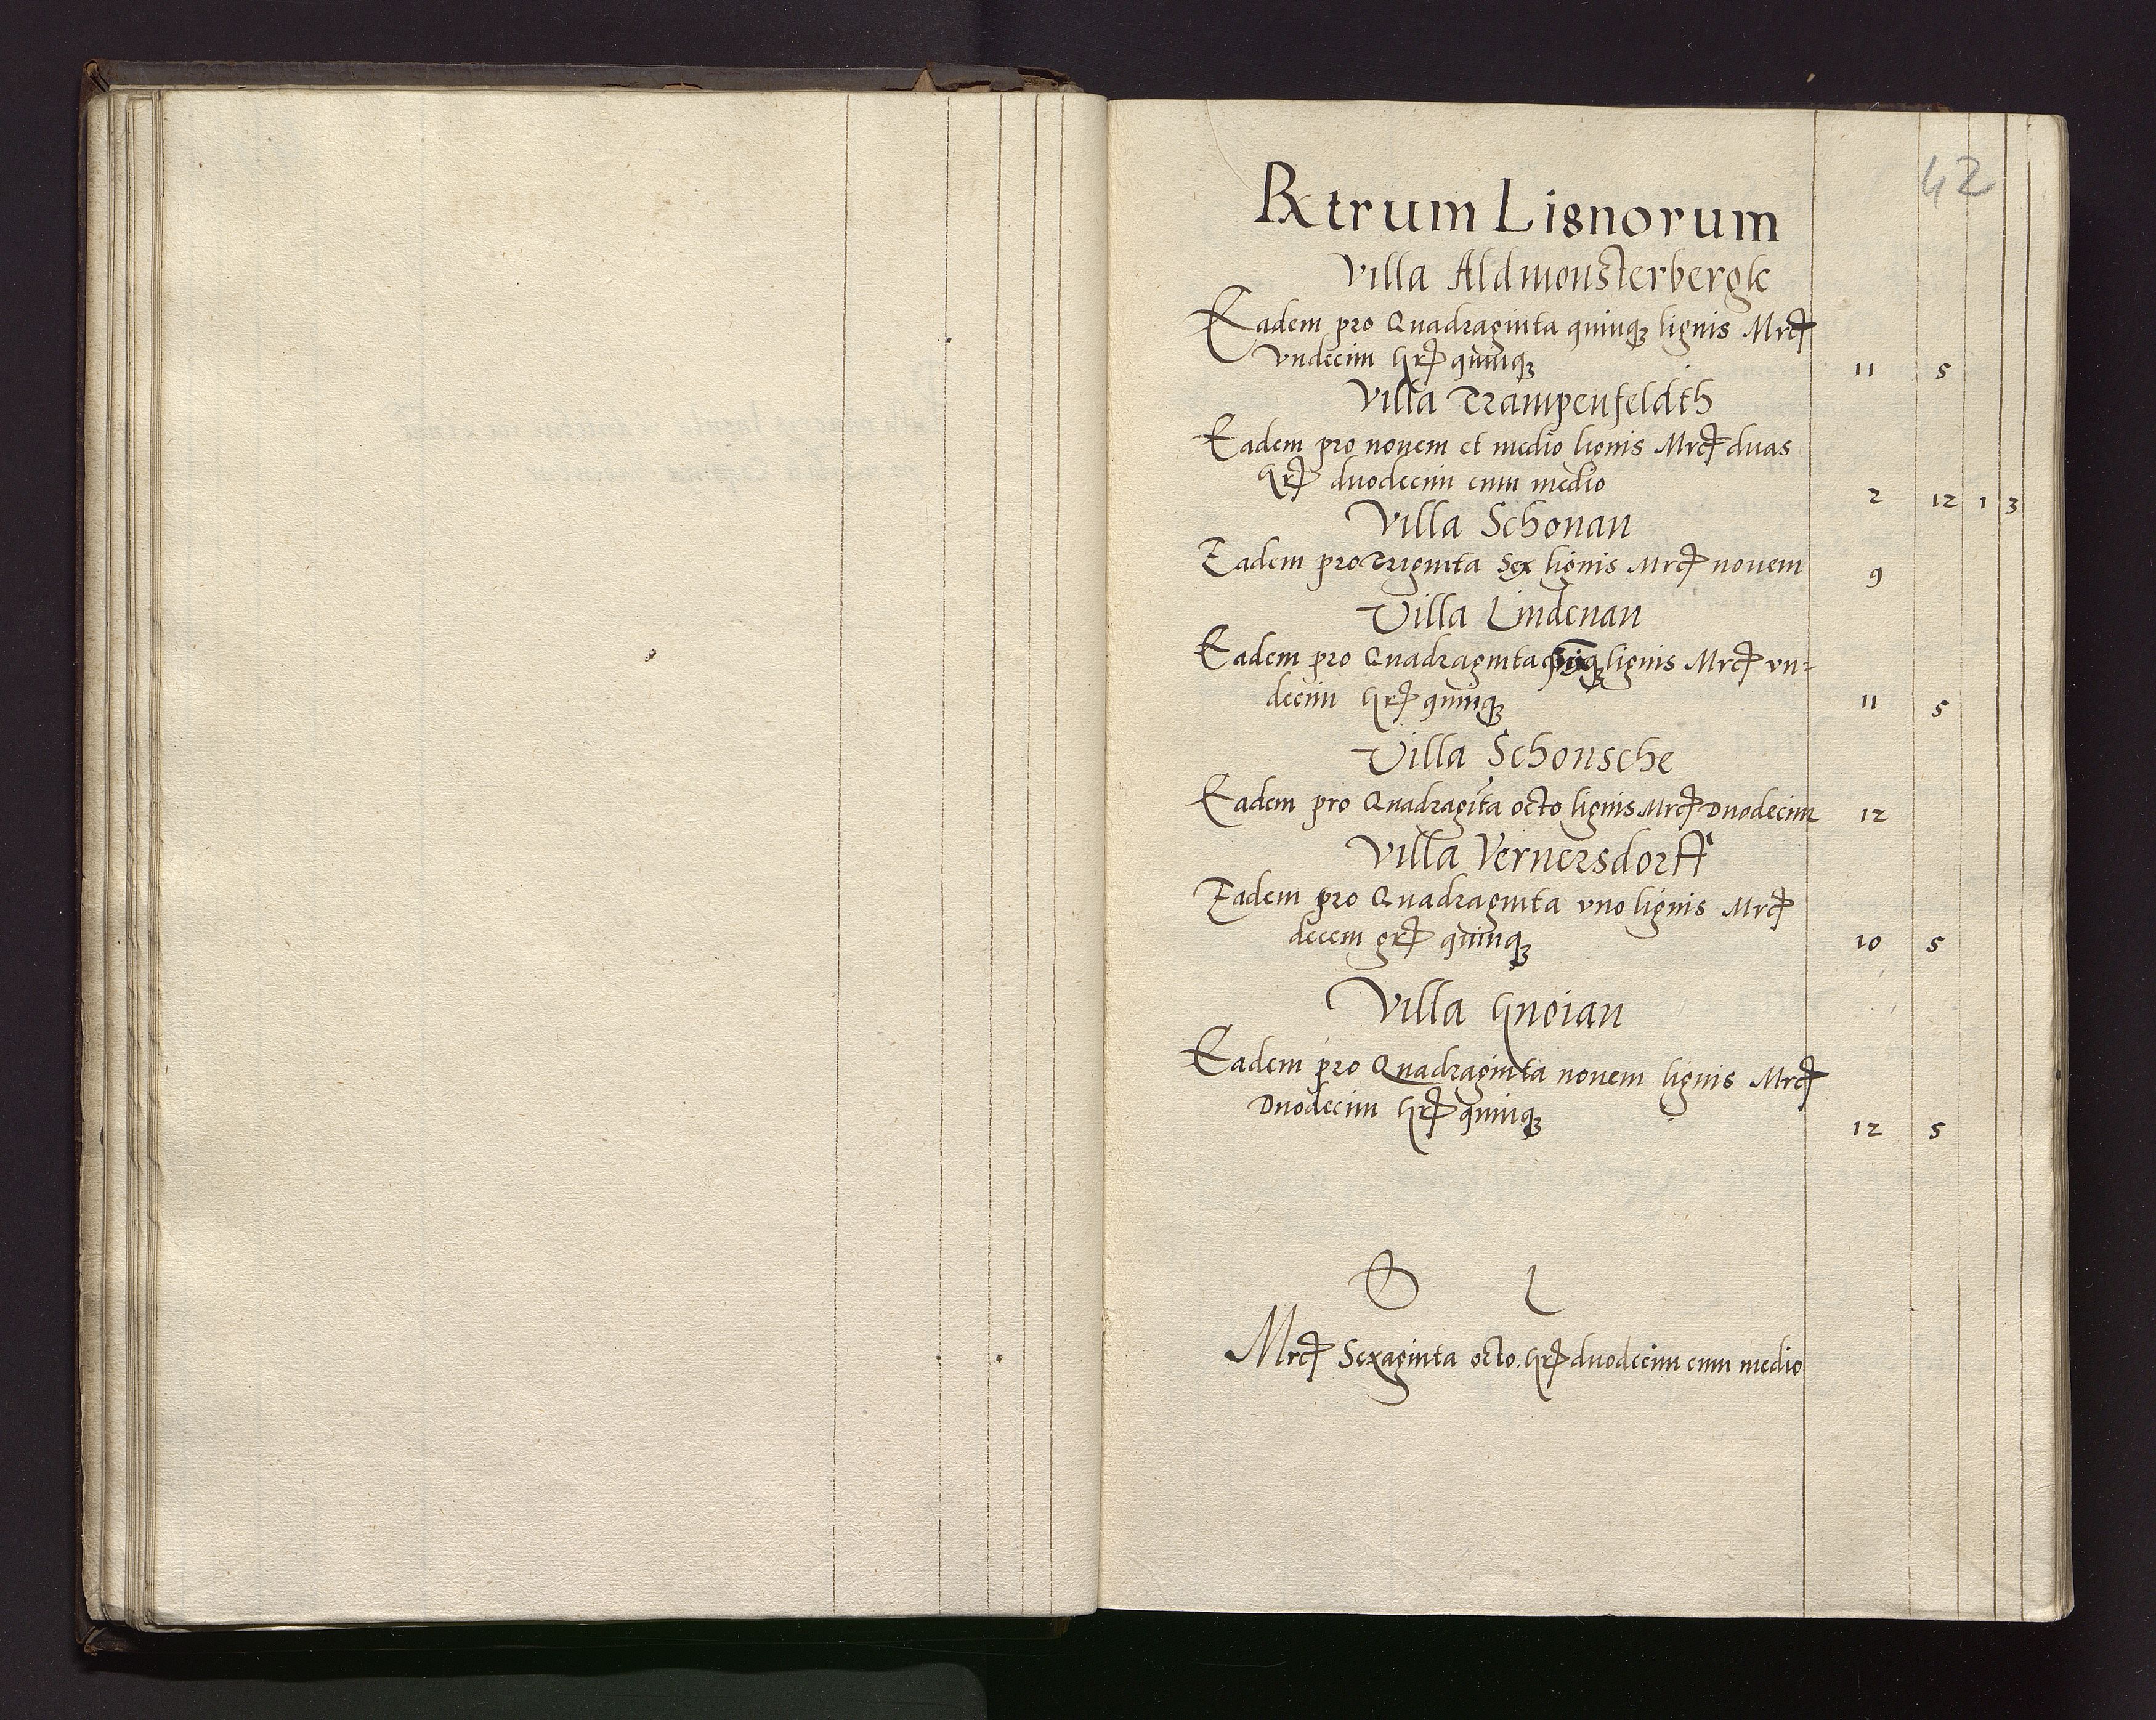 42
Rxtrum Lignorum
Villa Aldmonsterbergk
Eadem pro Quadraginta quinqꝫ lignis Mrcꝭ
vndecim grꝭ quinqꝫ 11 5
Villa Trampenfeldth
Eadem pro nouem et medio lignis Mrcꝭ duas
grꝭ duodecim cum medio 2 12 1 3
Villa Schonau
Eadem pro Triginta Sex lignis Mrcꝭ nouem 9
Villa Lindenau
Eadem pro Quadraginta lignis Mrcꝭ vn=
decim grꝭ quinqꝫ 11 5
Villa Schonsche
Eadem pro Quadragīta octo lignis Mrcꝭ Duodecim 12
Villa Vernersdorff
Eadem pro Quadraginta vno lignis Mrcꝭ
decem grꝭ quinqꝫ 10 5
Villa Gnoiau
Eadem pro Quadraginta nouem lignis Mrcꝭ
Duodecim grꝭ quinqꝫ 12 5
Mrcꝭ Sexaginta octo grꝭ duodecim cum medio